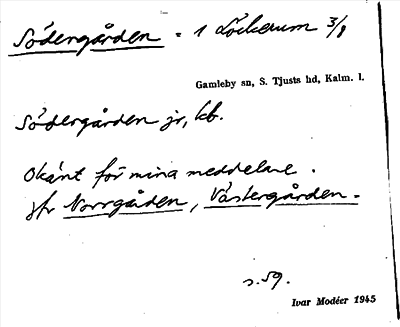 Södergården = 1 Löckerum 3/8
Gamleby sn, S. Tjusts hd, Kalm. l.
Södergården jr, kb.
Okänt för mina meddelare.
jfr Norrgården, Västergården.
s. 59.
Ivar Modéer 1945